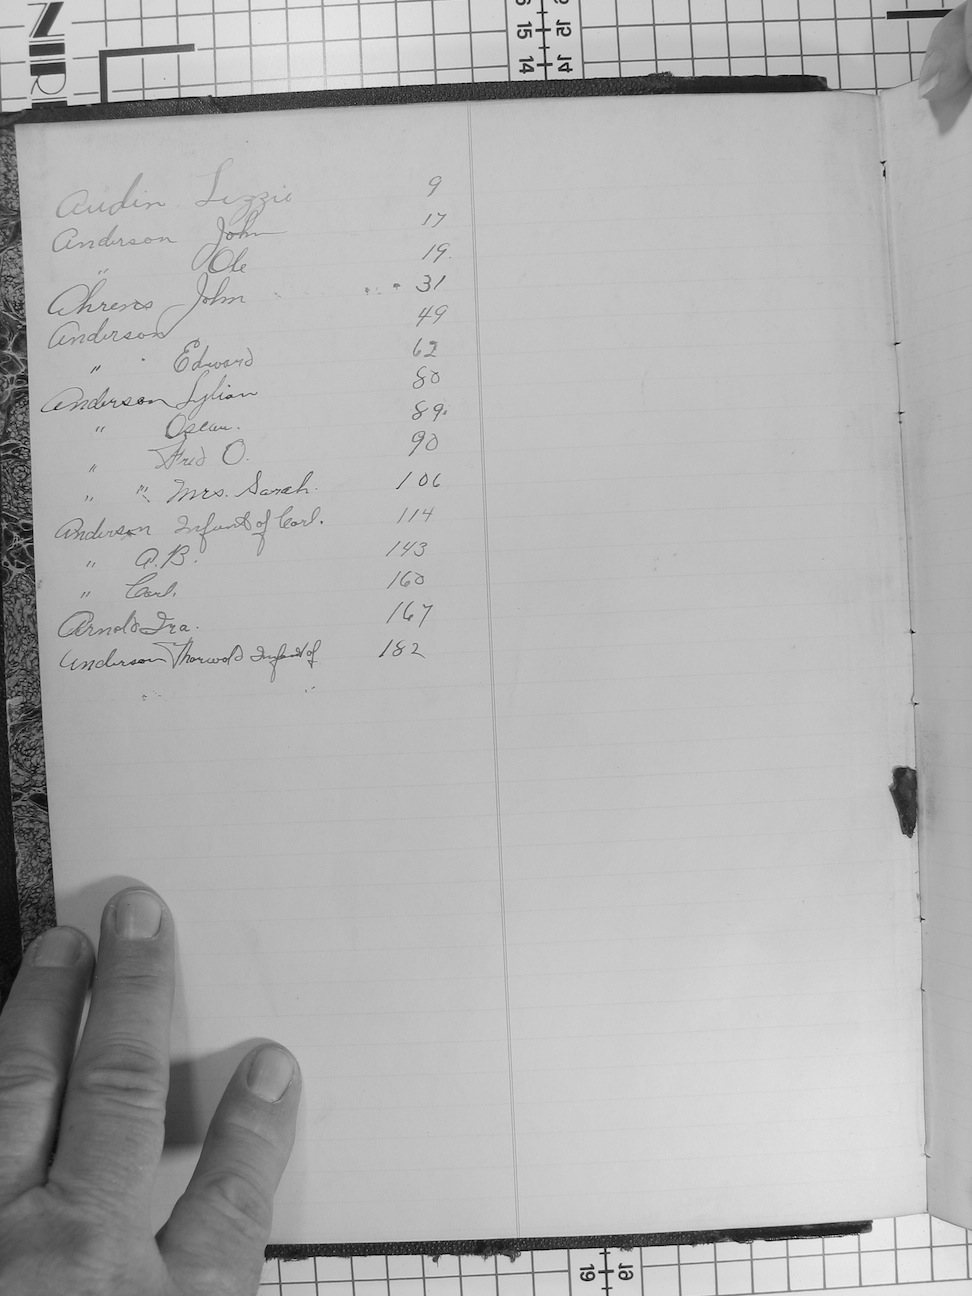 Audin Lizzie 9
Anderson John 17
" Ole 19.
Ahrens John 31
Anderson 49
" Edward 62
Anderson Lylian 80
" Oscar. 89.
" Fred O. 90
" " Mrs. Sarah. 106
Anderson Infant of Carl. 114
" A.B. 143
" Carl. 160
Arnold Ira. 167
Anderson Thorwold Infant of 182